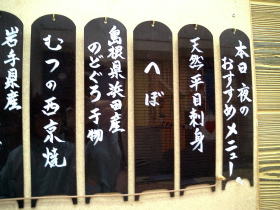 本日夜の
おすすめメニュー
天然平目刺身
へぼ
島根県浜田産
のどぐろ干物
むつの西京焼
岩手県産